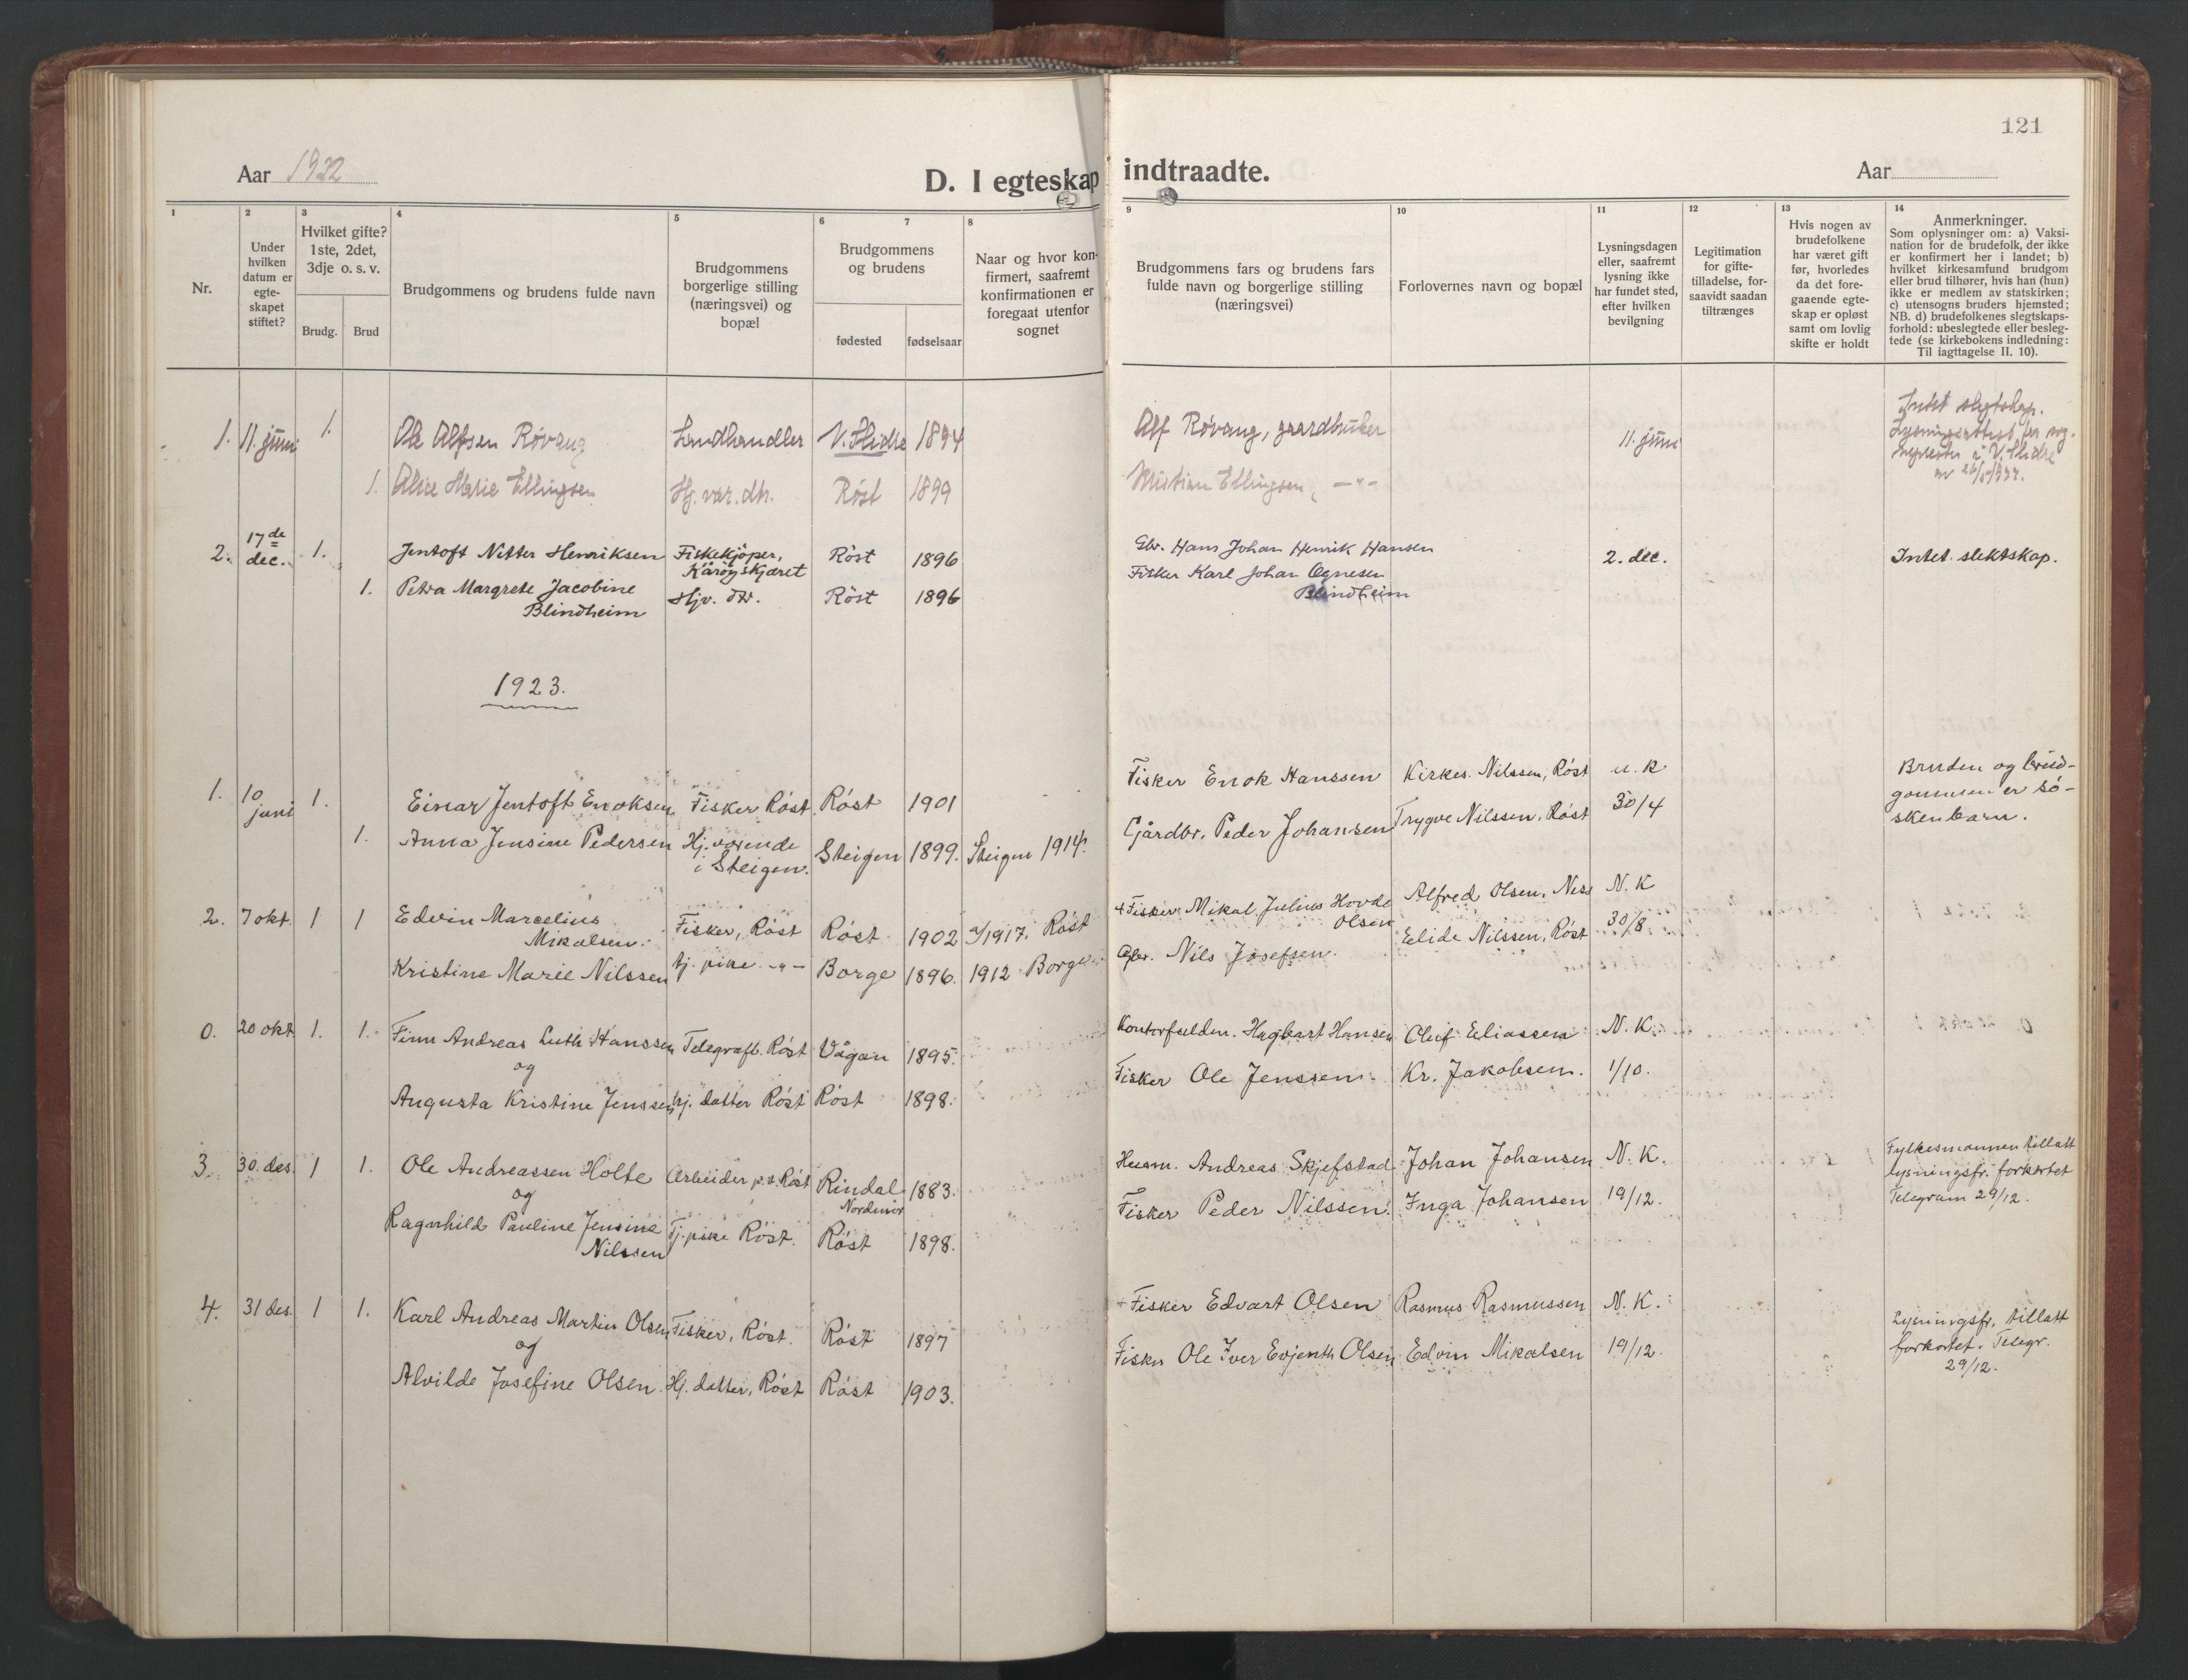 121
Aar 1922
D. I egteskap indtraadte.
Aar
1
2
3
4
5
6
7
8
9
10
11
12
13
14
Nr.
Under hvilken datum er egte-skapet stiftet?
Hvilket gifte? 1ste, 2det, 3dje o. s. v.
Brudg.
Brud
Brudgommens og brudens fulde navn
Brudgommens borgerlige stilling (næringsvei) og bopæl
Brudgommens og brudens
fødested
fødselsaar
Naar og hvor kon-firmert, saafremt konfirmationen er foregaat utenfor sognet
Brudgommens fars og brudens fars fulde navn og borgerlige stilling (næringsvei)
Forlovernes navn og bopæl
Lysningsdagen eller, saafremt lysning ikke har fundet sted, efter hvilken bevilgning
Legitimation for gifte-tilladelse, for-saavidt saadan tiltrænges
Hvis nogen av brudefolkene har været gift før, hvorledes da det fore-gaaende egte-skap er opløst samt om lovlig skifte er holdt
Anmerkninger.
Som oplysninger om: a) Vaksi-nation for de brudefolk, der ikke er konfirmert her i landet; b) hvilket kirkesamfund brudgom eller brud tilhører, hvis han (hun) ikke er medlem av statskirken; c) utensogns bruders hjemsted; NB. d) brudefolkenes slegtskaps-forhold: ubeslegtede eller besleg-tede (se kirkebokens indledning: Til iagttagelse II. 10).
1. 11. juni 1. Ole Alfsen Røvang Landhandler V. Slidre 1894 Alf Røvang, gaardbruker 11. juni Intet slegtskap.
V. Slidre
1. Alice Marie Ellingsen Hj. vær. dtr. Røst 1899 Kristian Ellingsen, —"—
2. 17de dec. 1. Jentoft Netter Henriksen Fiskekjøper, Kårøyskjæret Røst 1896 Gbr. Hans Johan Henrik Hansen 2. dec. Intet slektskap.
1. Petra Margrete Jacobine Hjv. dtr. Røst 1896 Fisker Karl Johan Agnesen
Blindheim Blindheim
1923.
1. 10 juni 1. Einar Jentoft Enoksen Fisker Røst Røst 1901 Fisker Enok Hanssen Kirkes. Nilssen, Røst u. k Bruden og brud-
gommen er sø-
skenbarn.
1. Anna Jensine Pedersen Hj. værende i Steigen. Steigen 1899. Steigen 1914. Gårdbr. Peder Johansen Trygve Nilssen, Røst 30/4
2. 7 okt. 1 1 Edvin Marcelius Mikalsen. Fisker, Røst Røst 1902 1917. Røst + Fisker Mikal Julius Hovde Olsen Alfred Olsen, Ness N. K
Kristine Marie Nilssen tj. pike —"— Borge 1896. 1912 Borge Gbr. Nils Josefsen. Elide Nilssen, Røst 30/8
0. 20 okt. 1. 1. Finn Andreas Luth Hanssen Telegrafb. Røst Vågan 1895. Kontorfuldm. Hagbart Hansen Oluf Eliassen N. K.
og
Augusta Kristine Jenssen hj. datter Røst Røst 1898. Fisker Ole Jenssen Kr. Jakobsen. 1/10.
3. 30. des. 1 1. Ole Andreassen Holte Arbeider p.t. Røst Rindal Nordmør 1883. Husm. Andreas Skjefstad Johan Johansen N. K. Fylkesmannen tillatt
lysningsfr. forkortet
Telegram 29/12.
og
Ragnhild Pauline Jensine Nilssen Tj. pike Røst. Røst 1898. Fisker Peder Nilssen. Inga Johansen 19/12.
4. 31 des. 1 1. Karl Andreas Martin Olsen Fisker, Røst. Røst 1897 + Fisker Edvart Olsen Rasmus Rasmussen N. K. Lysningsfr. tillatt
forkortet. Telegr.
29/12.
og
Alvilde Josefine Olsen. Hj. datter, Røst Røst 1903. Fisker Ole Iver Evjenth Olsen Edvin Mikalsen 19/12.